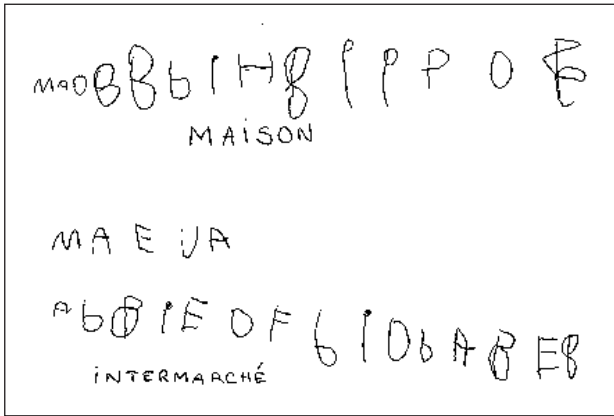 MAOBBbIH8IPPOE
MAiSON
MAEVA
Ab8IEOFbIObABE8
iNTERMARCHÉ